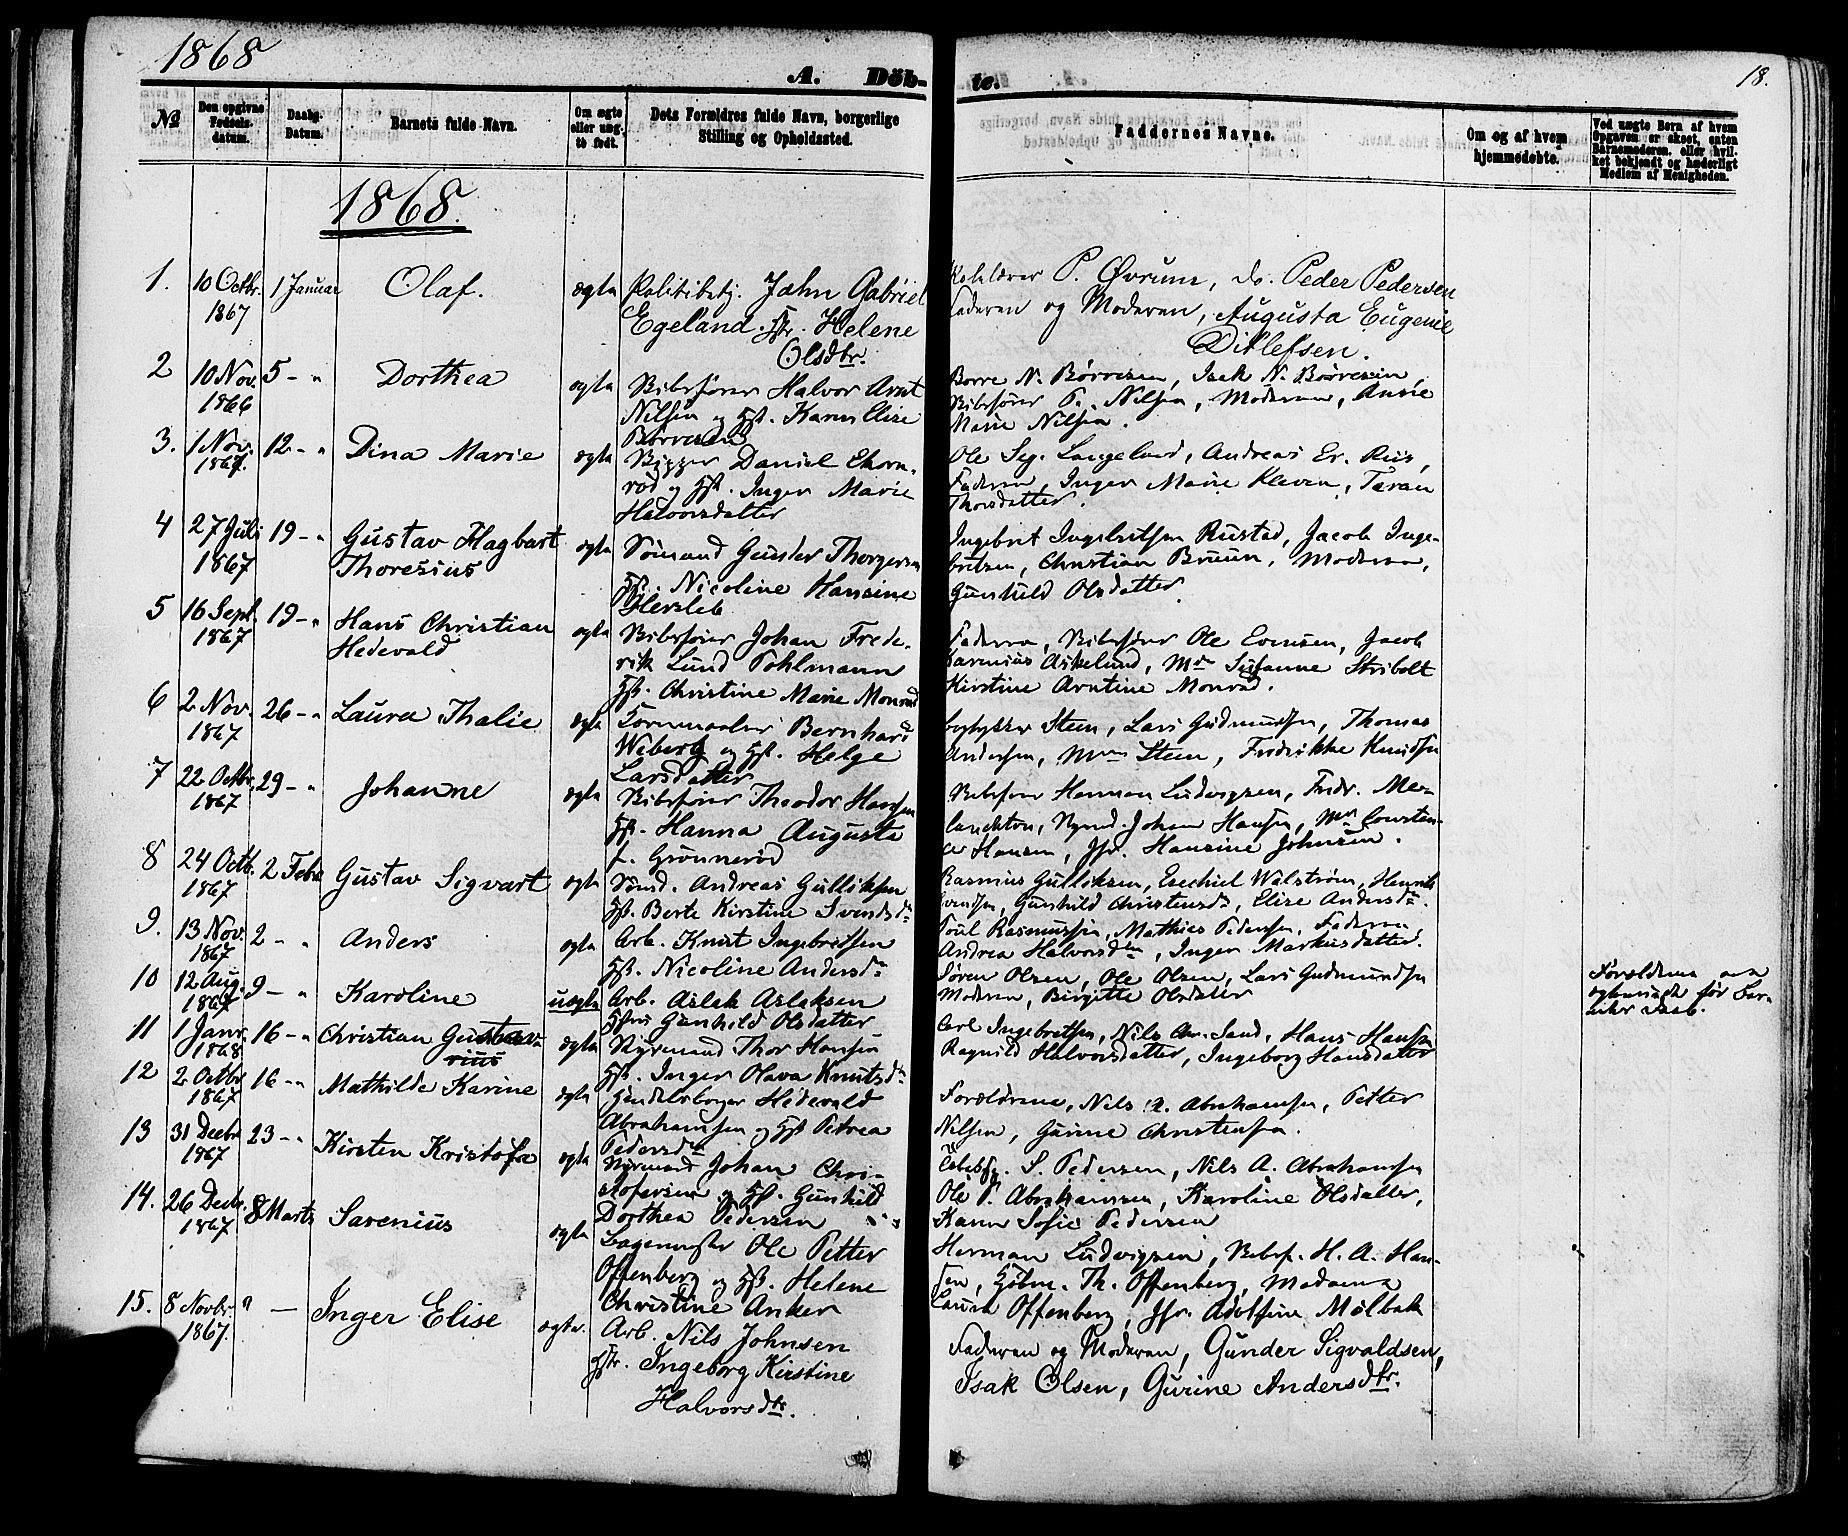 1868
A. Döb-
te.
18.
№
Den opgivne Fødsels-datum.
Daabs-Datum.
Barnets fulde Navn.
Om ægte eller uægte født.
Dets Forældres fulde Navn, borgerlige Stilling og Opholdssted.
Faddernes Navne.
Om og af hvem hjemmedøbte.
Ved uægte Børn af hvem Opgaven er skeet, enten Barnemoderen, eller hvilket bekjendt og hæderligt Medlem af Menigheden.
1868.
1. 10 Octbr. 1867 1 Januar Olaf. ægte Politibetj. Jæhn Gabriel
Egeland. Hstr. Helene
Olsdtr.
P. Øvrum, do. Peder Pedersen
Faderen og Moderen, Augusta Eugenie
Ditlefsen.
2 10 Nov. 1866 5 - " Dorthea ægte Halvor Arnt
Nilsen og Hst. Karen Elise
Børresen
Børre N. Børresen, Isak N. Børresen,
P. Nilsen, Moderen, Ansie
Marie Nilsen.
3. 1 Nov. 1867. 12 - " Dina Marie ægte Bygger Daniel Ekorn-
rød og Hst. Inger Marie
Halvorsdatter
Ole Seg. Langelund, Andreas Er. Riis,
Faderen, Inger Marie Kleven, Taran
Thorsdatter.
4 27 Juli 1867 19 - " Gustav Hagbart
Thoresius ægte Sömand Gunder Thorgersen
Hst. Nicoline Hansine
Hersleb
Ingebret Ingebritsen Rustad, Jacob Inge-
britsen, Christian Bruun, Moderen,
Gunhild Olsdatter.
5 16 Sept. 1867 19 - " Hans Christian
Hedevald ægte Johan Frede-
rik Lund Pohlmann
Hst. Christine Marie Monrad
Faderen, Ole Evensen, Jacob
Askelund, Mdm Susanne Stribolt
Kirstine Arntine Monrad.
6 2 Nov. 1867 26 - " Laura Thalie ægte Bernhard
Weberg og Hst. Helge
Larsdatter
Steen, Lars Gudmundsen, Thomas
Andersen, Mdm Steen, Fredrikke Knudsen
7 22 Octbr. 1867 29 - " Johanne ægte Theodor Hansen
Hst. Hanna Augusta
f. Grönneröd
Herman Ludvigsen, Fredr. Me-
lanchton, Johan Hansen, Mdm Constan-
ce Hansen, Jfr. Hansine Johnsen.
8 24 Octb. 1867 2 Febr. Gustav Sigvart ægte Sömd. Andreas Gulliksen
Hst. Berte Kirstine Svendsdtr
Rasmus Gulliksen, Ezechiel Walström, Henrik
Svendsen, Gunhild Christensdtr, Elise Andersdtr.
9. 13 Nov. 1867 2 - " Anders ægte Arb. Knut Ingebritsen
Hst. Nicoline Andersdtr
Poul Rasmussen, Mathies Pedersen, Faderen
Andrea Halvorsdtr, Inger Markusdatter.
10 12 Aug. 1867 9 - " Karoline uægte Arb. Aslak Aslaksen
Gunhild Olsdatter
Søren Olsen, Ole Olsen, Lars Gudmundsen
Moderen, Birgitte Olsdatter
Forældrene
for
11 1 Janr. 1868 16 - " Christian Gustav-
rius ægte Styrmand Thor Hansen
Hst. Inger Olava Knutsdtr
Carl Ingebretsen, Nils Chr. Sand, Hans Hansen
Ragnild Halvorsdatter, Ingeborg Hansdatter
12 2 Octbr 1867 16 - " Mathilde Karine ægte Handelsborger Hedevald
Abrahamsen og Hst Petrea
Pedersdtr
Forældrene, Nils A. Abrahamsen, Petter
Nilsen, Gurine Christensen.
13 31 Decbr 1867 23 - " Kirsten Kristofa ægte Styrmand Johan Chri-
stofersen og Hst. Gunhild
Dorthea Pedersen
S. Pedersen, Nils A. Abrahamsen
Ole P. Abrahamsen, Karoline Olsdatter,
Karen Sofie Pedersen
14. 26 Decbr. 1867 8 Marts Sarenius ægte Bagermester Ole Petter
Offenberg og Hst. Helene
Christine Anker
Herman Ludvigsen, H. A. Han-
sen, Th. Offenberg, Madame
Laura Offenberg, Jfr. Adolfine Mölbak
15. 8 Novbr. 1867. " — Inger Elise ægte. Arb. Nils Johnsen
Hstr. Ingeborg Kirstine
Halvorsdtr.
Faderen og Moderen, Gunder Sigvaldsen,
Isak Olsen, Gurine Andersdtr.